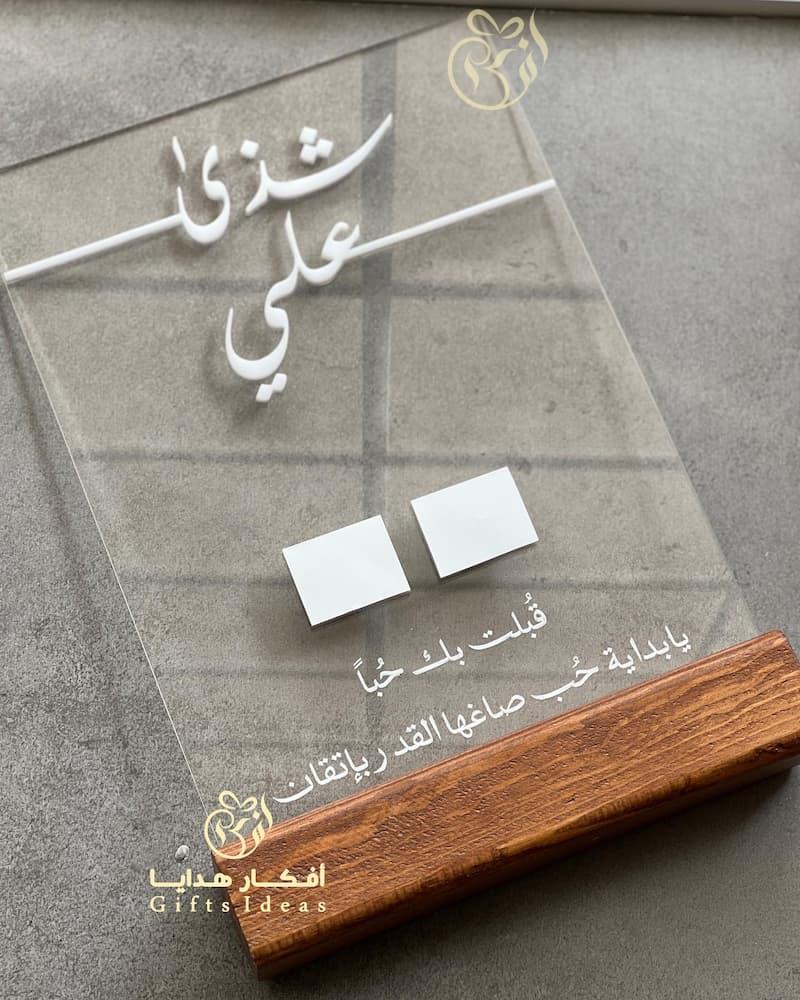 شذى
علي
قُبلت بك حُباً
يابداية حُب صاغها القدر بإتقان
أفكار هدايا
Gifts Ideas